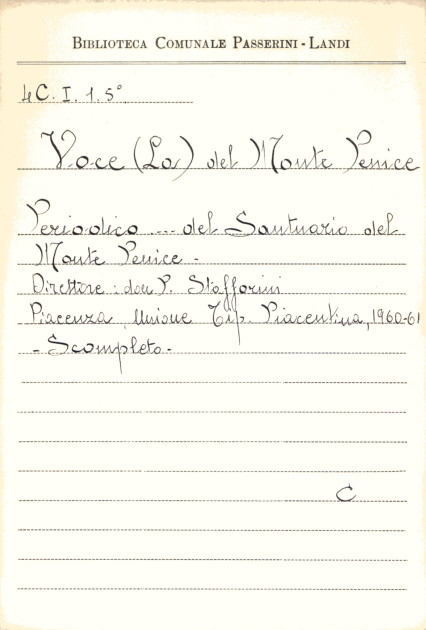 BIBLIOTECA COMUNALE PASSERINI - LANDI
4 C. I. 1. 5°
Voce (La) del Monte Penice
Periodico ... del Santuario del
Monte Penice -
Direttore: don P. Stafforini
Piacenza, Unione Tip. Piacentina, 1960-61
- Scompleto -
C